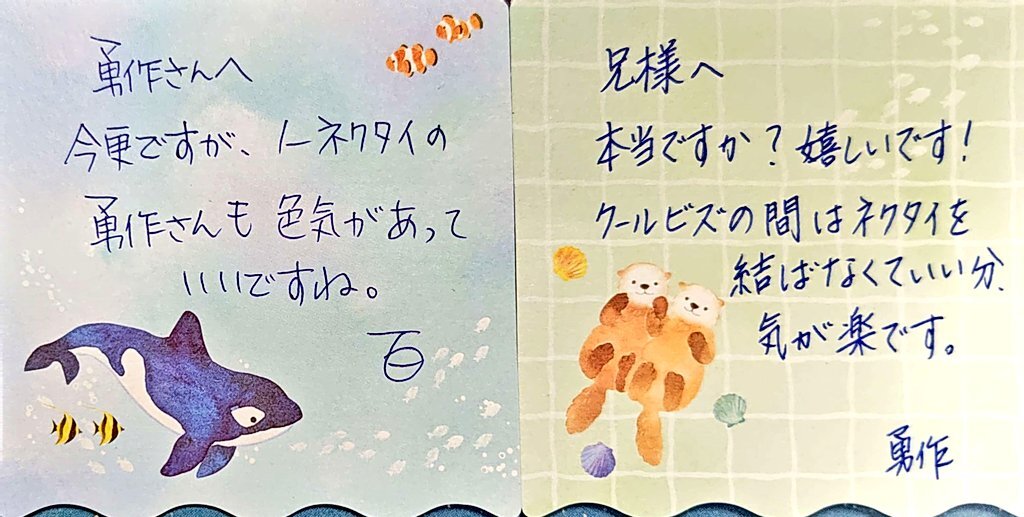 勇作さんへ
今更ですが、ノーネクタイの
勇作さんも色気があって
いいですね。
百
兄様へ
本当ですか？嬉しいです！
クールビズの間はネクタイを
結ばなくていい分、
気が楽です。
勇作